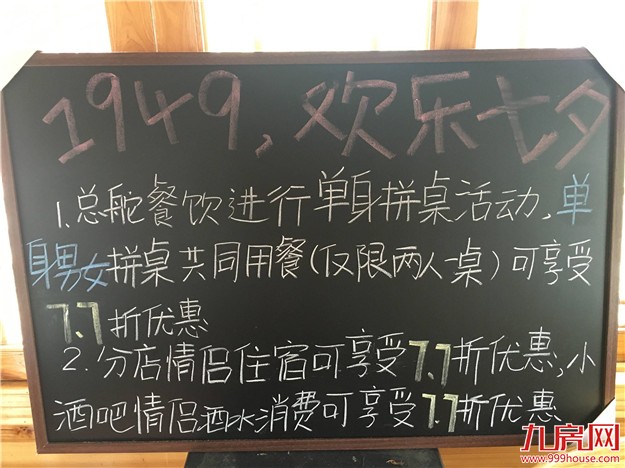 1949，欢乐七夕
1.总舵餐饮进行单身拼桌活动，单
身男女拼桌共同用餐（仅限两人一桌）可享受
7.7折优惠
2.分店情侣住宿可享受7.7折优惠，小
酒吧情侣酒水消费可享受7.7折优惠
九房网
www.999house.com